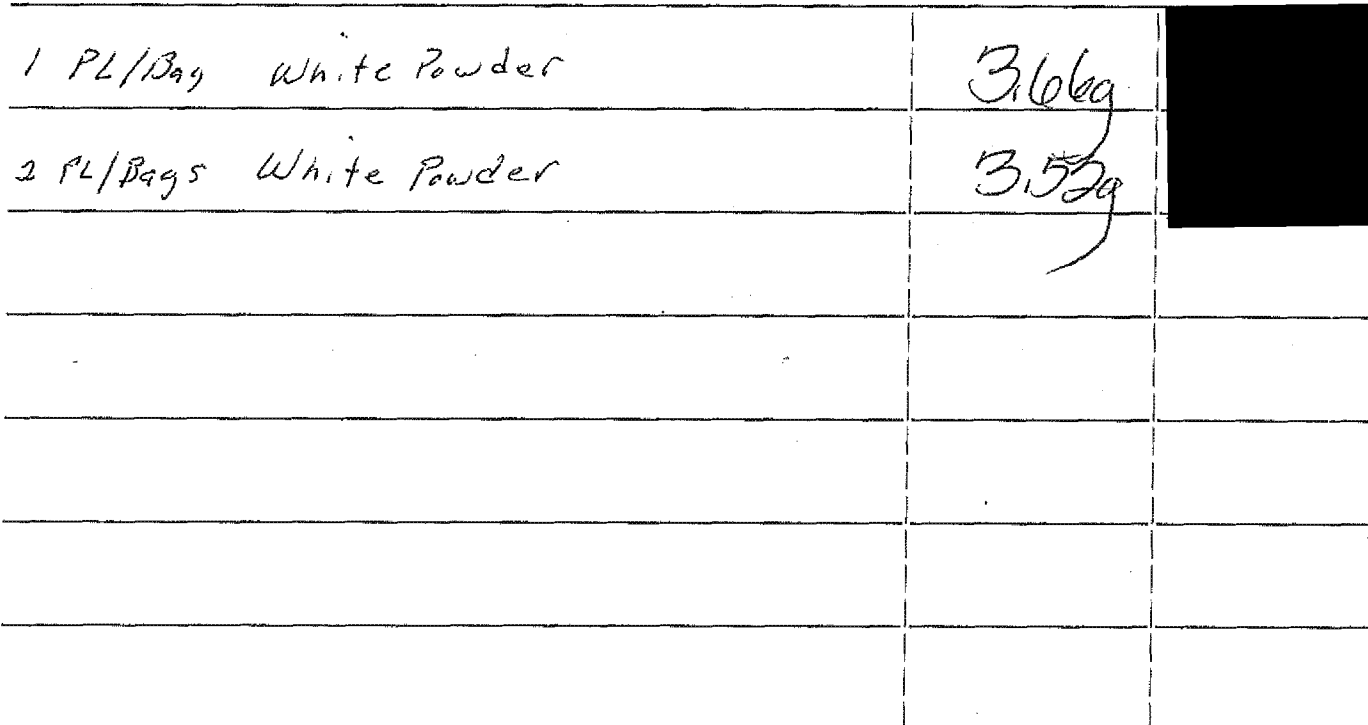 1 PL/Bag White Powder 3.66g
2 PL/Bags White Powder 3.52g